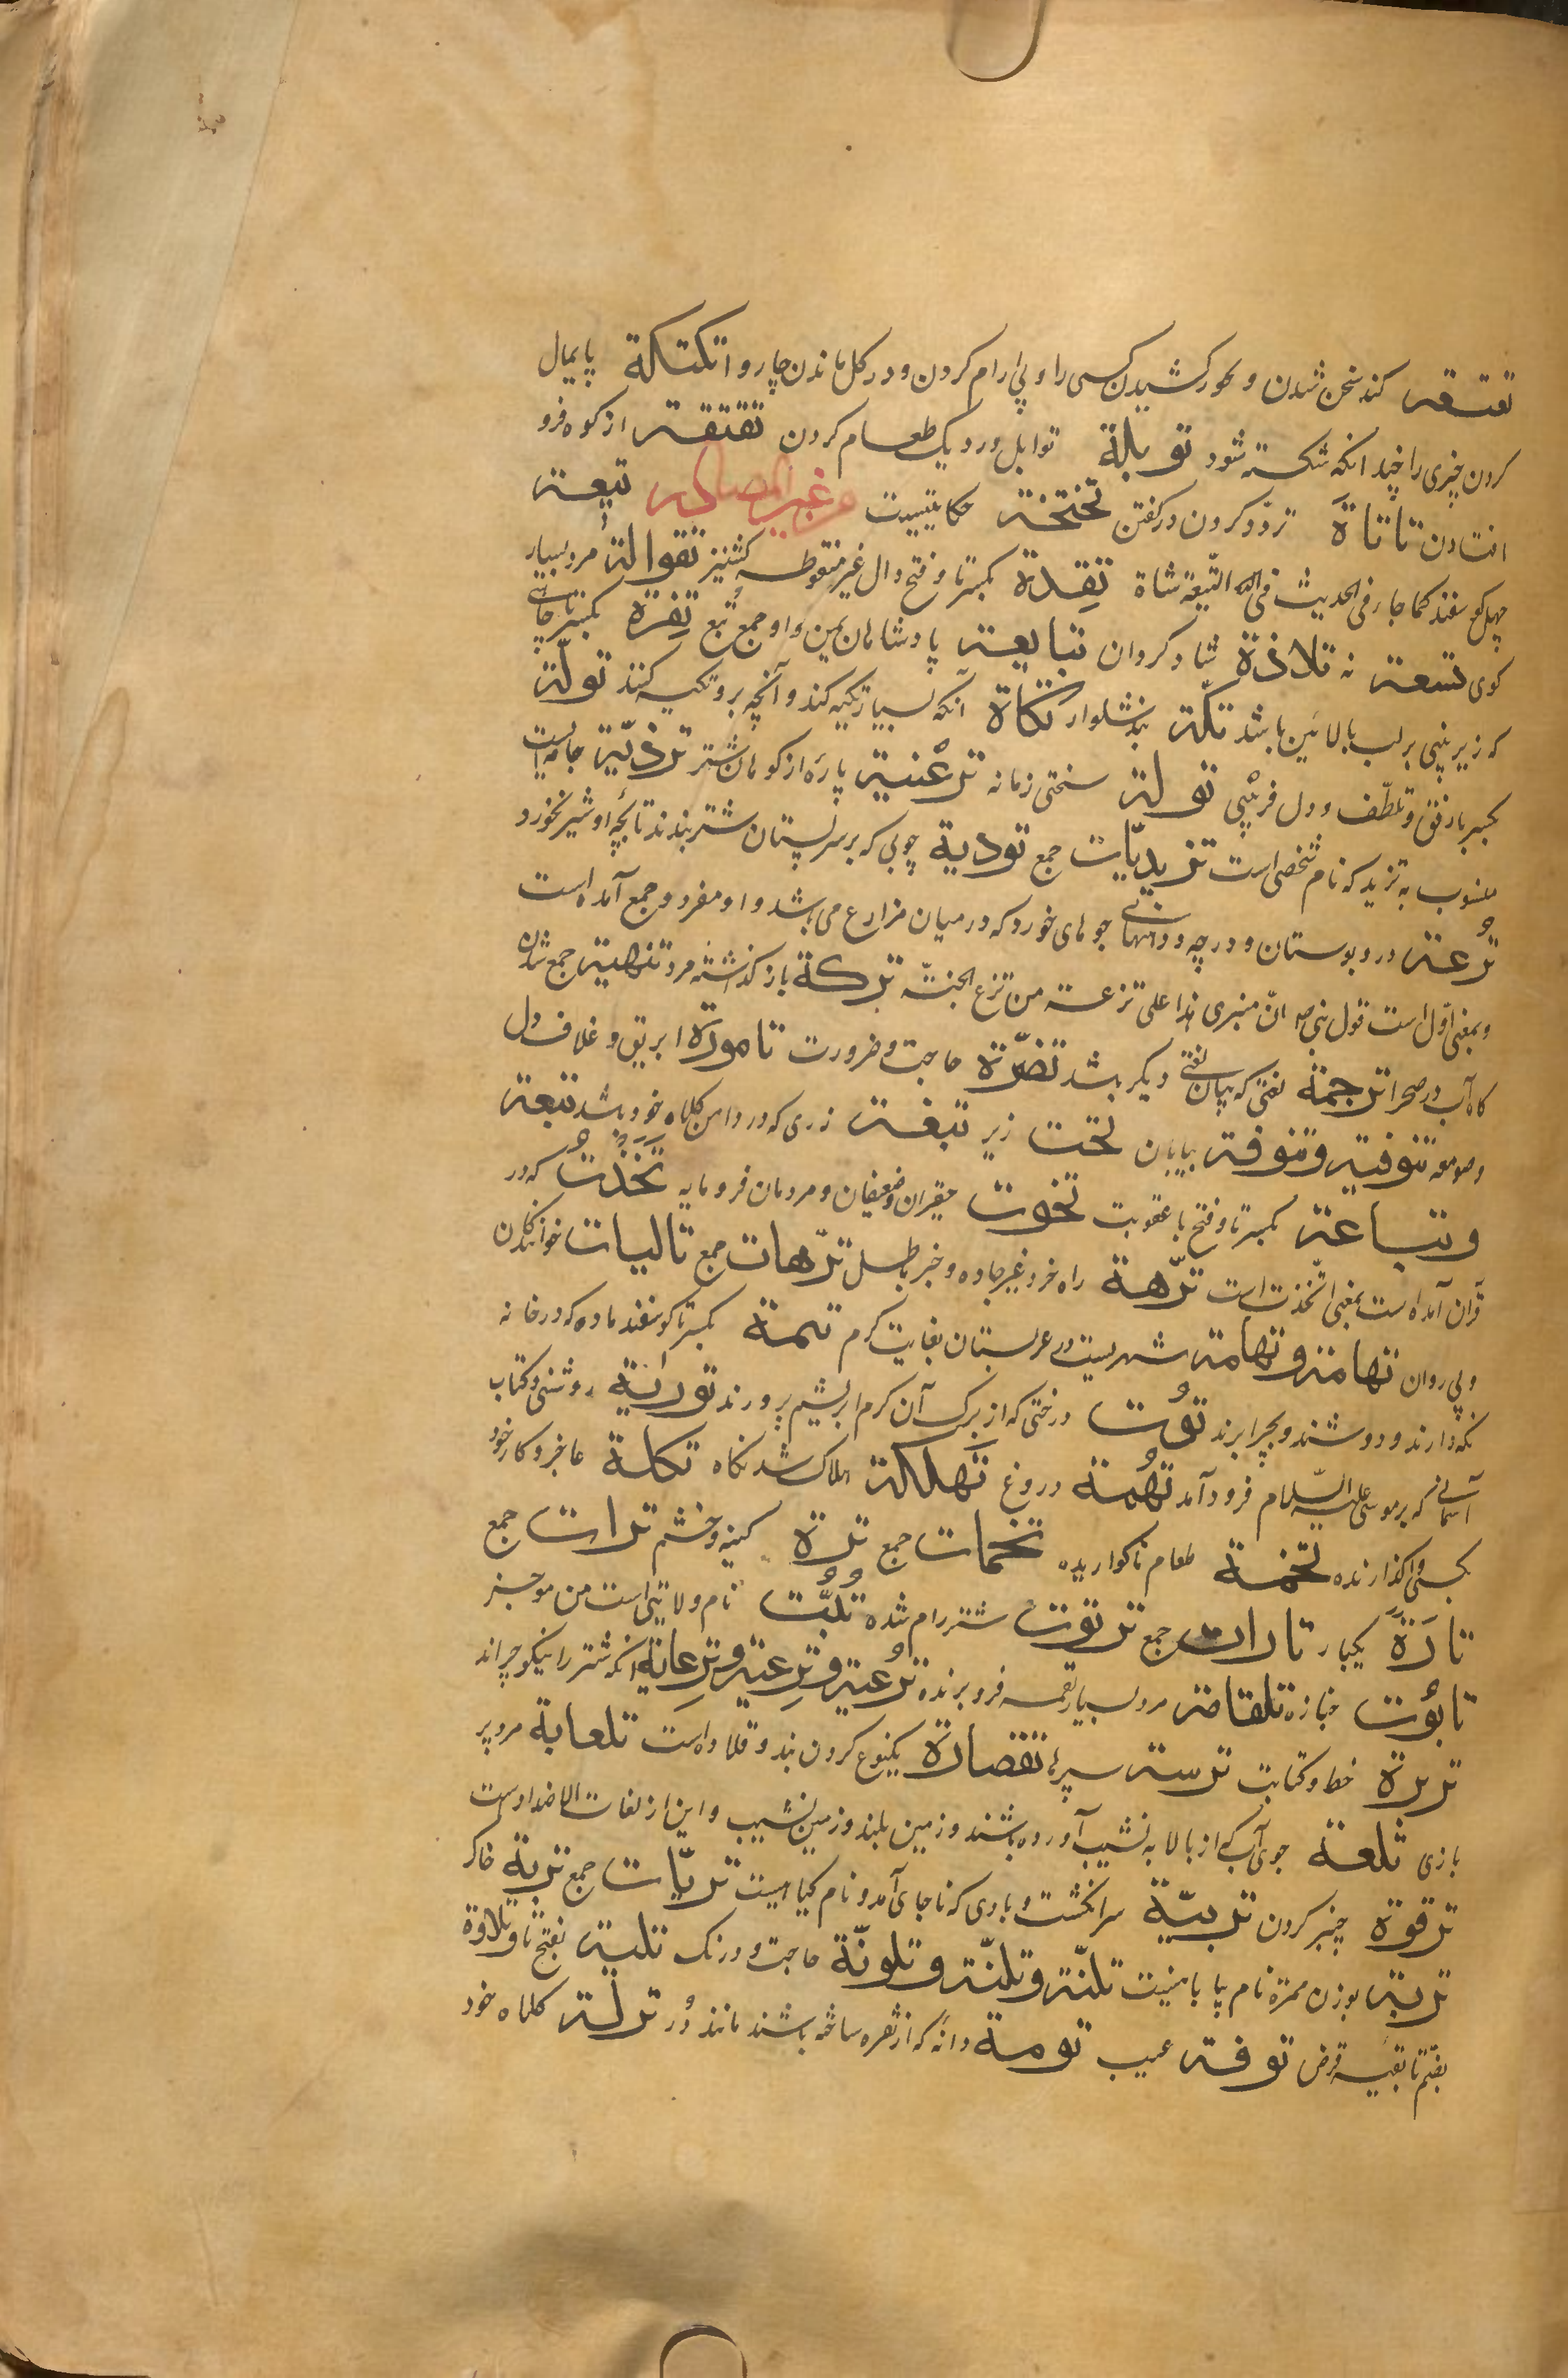 تعتعة کند سخن شدن و بخود کشیدن کسی را و پی ارام کردن و در گل ماندن چاروا تکتکة پایمال
کردن چیزی را چندانکه شکسته شود توبلة توابل در دیک طعام کردن تقتقة از کوه فرو
افتادن تاتاة تردّد کردن در گفتن تختخة حکایتیست من غیر المصادر تیعة
چهل گوسفند کما جاء فی الحدیث فی التّیعة شاة تِقِدة بکسر تا و فتح دال غیر منقوطه کشنیز تقوالة مرد بسیار
گوی تسعة نه تلامذة شاگردان تبابعة پادشاهان یمن و او جمع تبّع تِفِرة بکسر تا جائی
که زیر بینی بر لب بالائین باشد تکّة بند شلوار تکاة انکه بسیار تکیه کند و آنچه برو تکیه کنند تولة
بکسر با رفق و تلطّف و دل فریبی تولة سختی زمانه ترعْنیة پاره از کوهان شتر تزیدیّة جامه ایست
منسوب به تزید که نام شخصی است تزیدیّات جمع تودیة چوبی که بر سر پستان شتر بندند تا بچّه او شیر نخورد
تُرعة در و بوستان و درچه و دهانهای جوهای خورد که در میان مزارع می باشد و او مفرد و جمع آمده است
و بمعنی اوّل است قول نبی ص انّ منبری هذا علی ترعة من ترع الجنّة ترکة باز گذاشته مرد تنهیة جمع شدن
گاه آب در صحرا ترجمة لغتی که بیان لغتی دیگر باشد تضرّة حاجت و ضرورت تامورة ابریق و غلاف دل
و صومعه تنوفیة و تنوفة بیابان تحت زیر تبغة زری که در دامن کلاه خود باشد تبعة
و تباعة بکسر تا و فتح با عقوبت تخوت حقیران و ضعیفان و مردمان فرومایه تَخَذْتُ که در
قران آمده است بمعنی اتّخذت است ترّهة راه خرد غیر جاده و خبر باطل ترّهات جمع تالیات خوانندگان
و پی روان تهامة و تهامة شهریست در عربستان بغایت گرم تیمة بکسر تا گوسفند ماده که در خانه
نگه دارند و دوشند و بچرا برند تُوت درختی که از برگ آن کرم ابریشم پرورند توریة روشنی و کتاب
آسمانی که بر موسی علیه السّلام فرود آمد تُهمة دروغ تَهلکة هلاک شدنگاه تکلة عاجز و کار خود
بکسی واگذارنده تخمة طعام ناگواریده تخمات جمع ترة کینه و خشم ترات جمع
تارَة یکبار تارات جمع تربوت شتر رام شده تُبّت نام ولایتی است من موجز
تابُوت جنازه تلقامة مرد بسیار لقمه فرو برنده تُرعیة و تِرعیة و تِرعایة انکه شتر را نیکو چراند
تربرة خط و کتابت ترسة سپرها تقصارة یکنوع کردن بند و قلاده است تلعابة مرد پر
بازی تلعة جوی آب که از بالا به نشیب آورده باشند و زمین بلند و زمین نشیب و این از لغات الاضدادست
ترقوة چنبر کردن تربیّة سر انگشت و بادی که ناجای آمد و نام گیاهیست تربّات جمع تربة خاک
تربة بوزن همزه نام بیابانیست تلنّة و تلنّة و تلونّة حاجت و درنگ تلیة بفتح تا و تلاوة
بضم تا بقیه قرض توفة عیب تومة دانه که از نقره ساخته باشند مانند دُر ترلة کلاه خود